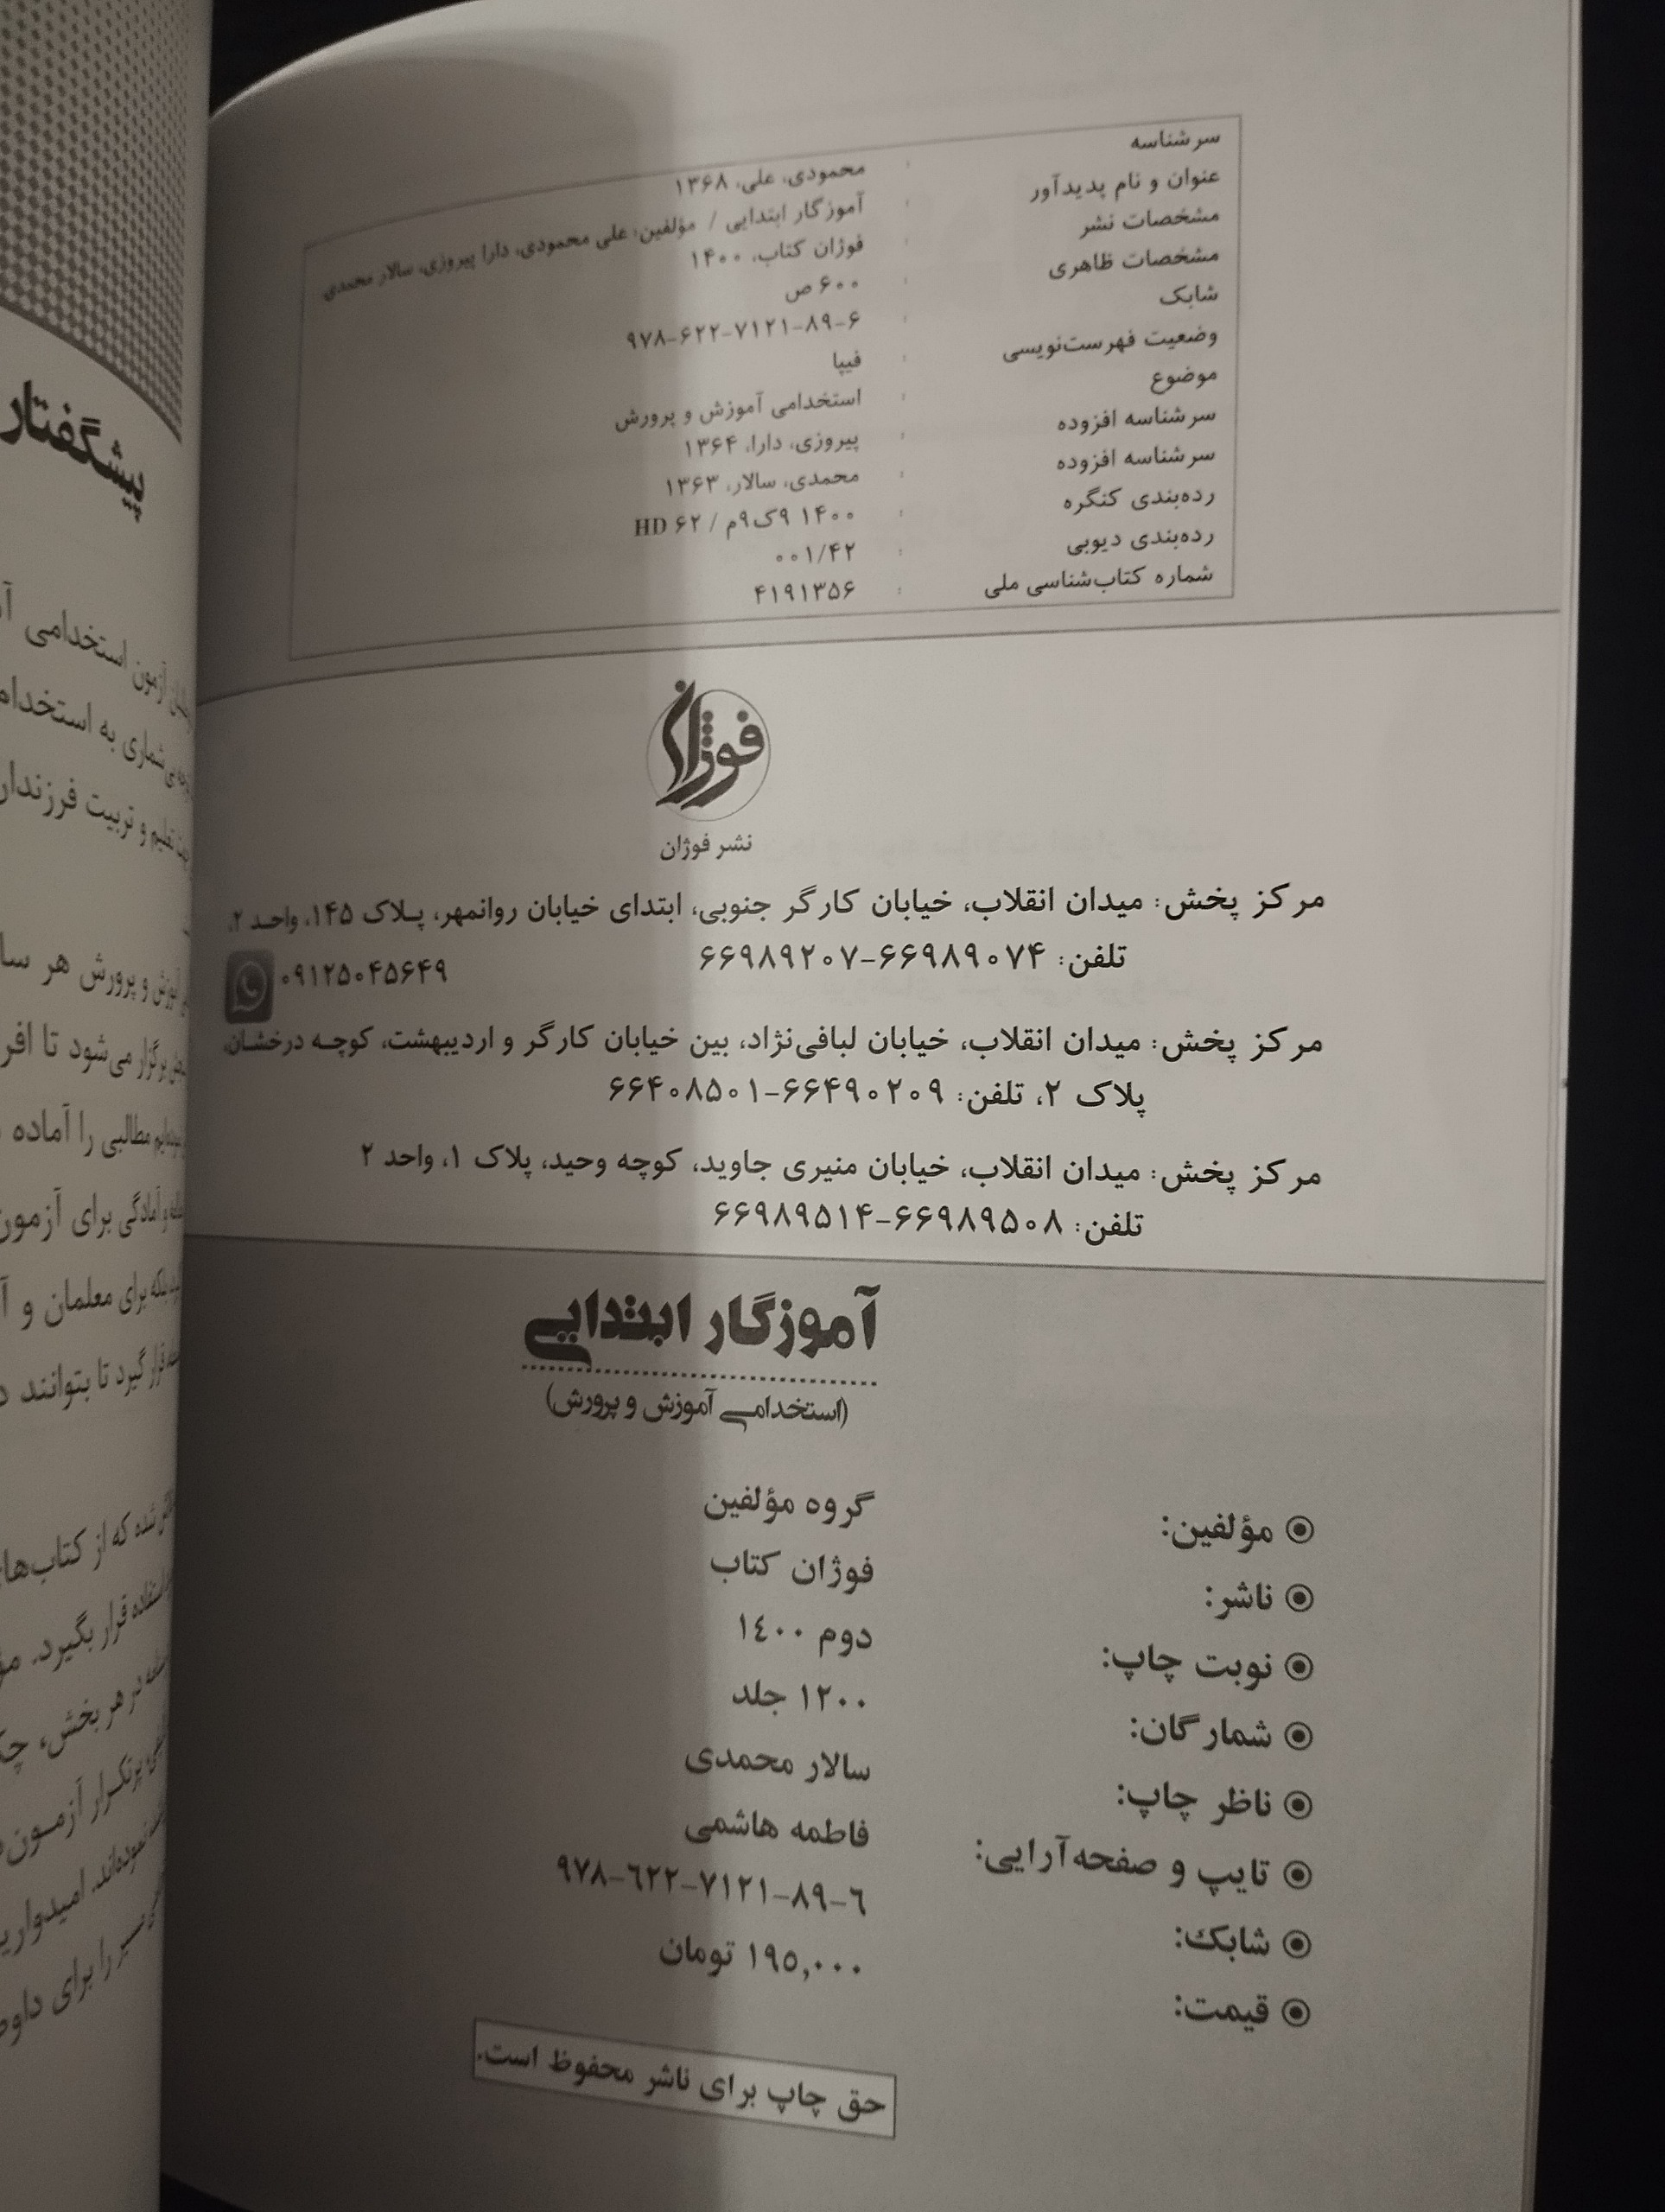 سرشناسه : محمودی، علی، ۱۳۶۸
عنوان و نام پدیدآور : آموزگار ابتدایی / مؤلفین: علی محمودی، دارا پیروزی، سالار محمدی
مشخصات نشر : فوژان کتاب، ۱۴۰۰
مشخصات ظاهری : ۶۰۰ ص
شابک : ۹۷۸-۶۲۲-۷۱۲۱-۸۹-۶
وضعیت فهرست‌نویسی : فیپا
موضوع : استخدامی آموزش و پرورش
سرشناسه افزوده : پیروزی، دارا، ۱۳۶۴
سرشناسه افزوده : محمدی، سالار، ۱۳۶۳
رده‌بندی کنگره : ۱۴۰۰ ۹ک۹م / HD ۶۲
رده‌بندی دیویی : ۰۰۱/۴۲
شماره کتاب‌شناسی ملی : ۴۱۹۱۳۵۶
فوژان
نشر فوژان
مرکز پخش: میدان انقلاب، خیابان کارگر جنوبی، ابتدای خیابان روانمهر، پلاک ۱۴۵، واحد ۲،
تلفن: ۶۶۹۸۹۰۷۴-۶۶۹۸۹۲۰۷ ۰۹۱۲۵۰۴۵۶۴۹
مرکز پخش: میدان انقلاب، خیابان لبافی‌نژاد، بین خیابان کارگر و اردیبهشت، کوچه درخشان،
پلاک ۲، تلفن: ۶۶۴۹۰۲۰۹-۶۶۴۰۸۵۰۱
مرکز پخش: میدان انقلاب، خیابان منیری جاوید، کوچه وحید، پلاک ۱، واحد ۲
تلفن: ۶۶۹۸۹۵۰۸-۶۶۹۸۹۵۱۴
آموزگار ابتدایی
(استخدامی آموزش و پرورش)
مؤلفین: گروه مؤلفین
ناشر: فوژان کتاب
نوبت چاپ: دوم ۱٤۰۰
شمارگان: ۱۲۰۰ جلد
ناظر چاپ: سالار محمدی
تایپ و صفحه‌آرایی: فاطمه هاشمی
شابک: ۹۷۸-٦۲۲-۷۱۲۱-۸۹-٦
قیمت: ۱۹٥,۰۰۰ تومان
حق چاپ برای ناشر محفوظ است.
پیشگفتار
آزمون استخدامی
به استخدام
تعلیم و تربیت فرزندان
آموزش و پرورش هر سا
برگزار می‌شود تا افر
مطالبی را آماده
و آمادگی برای آزمون
بلکه برای معلمان و آ
قرار گیرد تا بتوانند د
شده که از کتاب‌های
استفاده قرار بگیرد. مؤ
در هر بخش، چک
پرتکرار آزمون‌ه
نموده‌اند. امیدواریم
را برای داوط